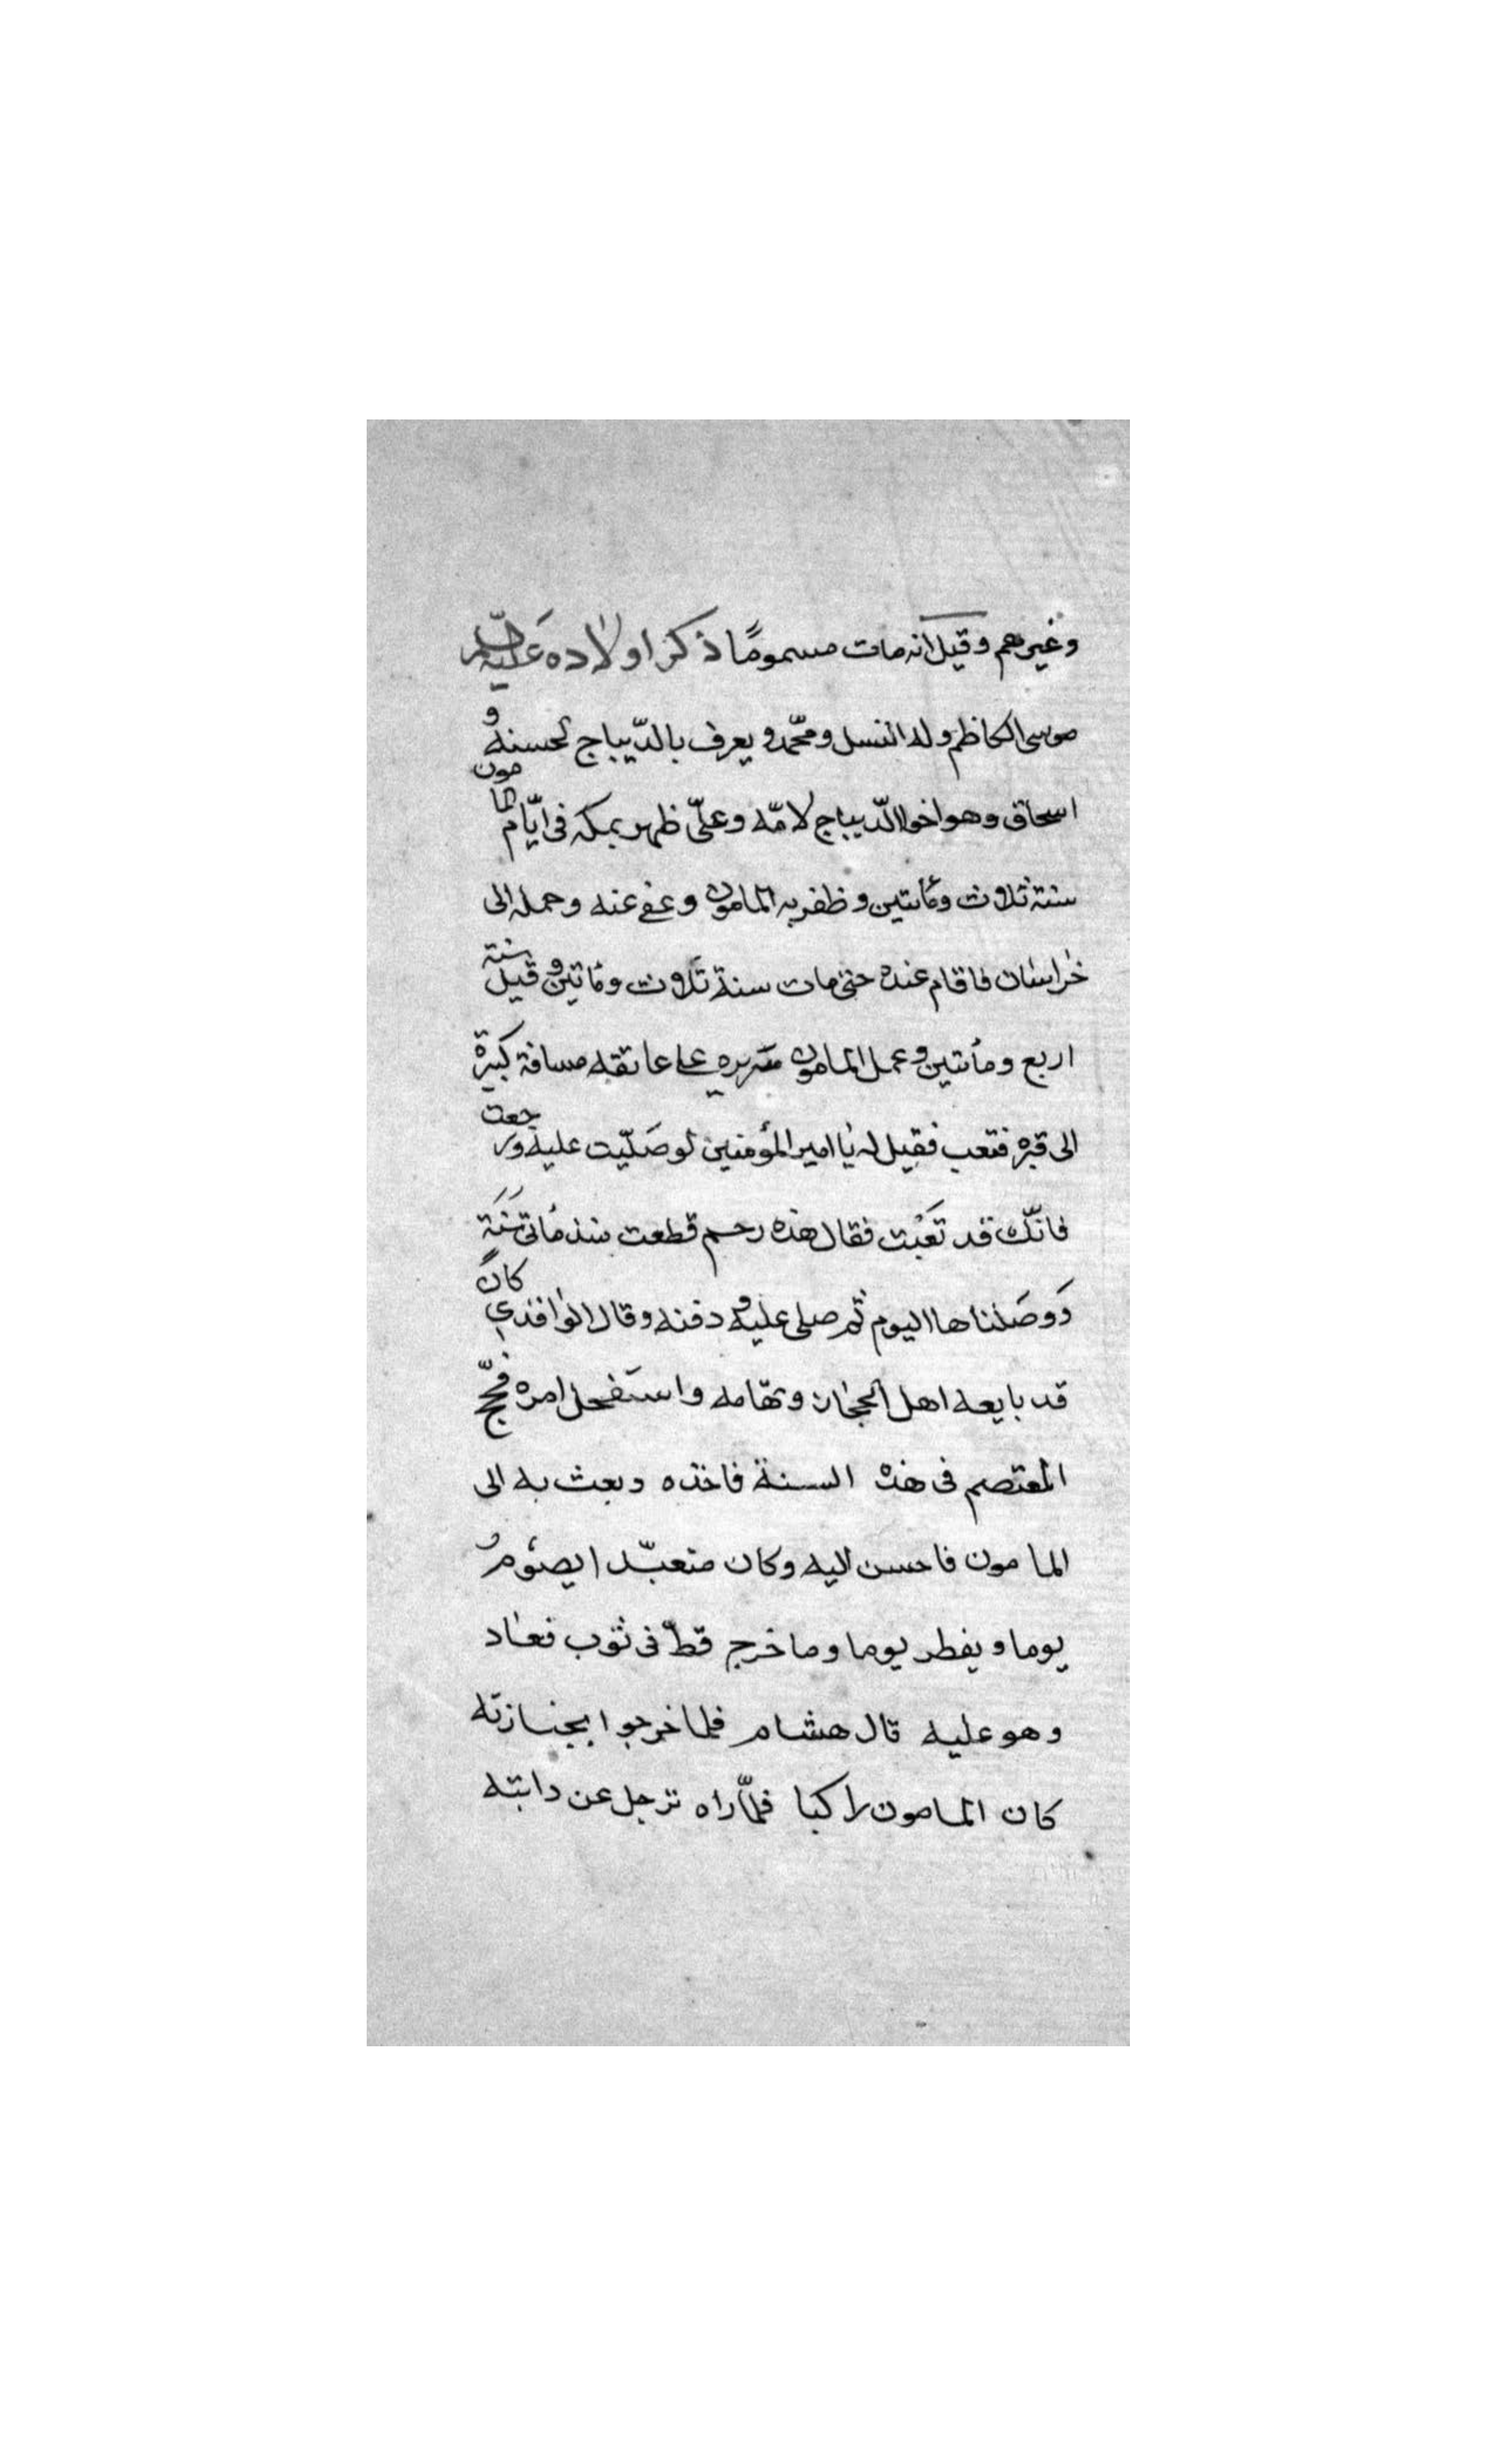 وغيرهم وقيل انه مات مسموماً ذكر اولاده عليه السلم
موسى الكاظم وله النسل ومحمّد ويعرف بالدّيباج لحسنه و
اسحاق وهو اخو الدّيباج لامّه وعلىّ ظهر بمكه فى ايّام المامون
سنة ثلاث ومأتين وظفر به المامون وعفى عنه وحمله الى
خراسان فاقام عنده حتى مات سنة ثلاث ومأتين وقيل سنة
اربع ومأتين وحمل المامون سريره على عاتقه مسافة كبيرة
الى قبره فتعب فقيل له يا امير المؤمنين لو صَلّيت عليه ورجعت
فانّك قد تَعبْت فقال هذه رحم قطعت منذ مأتى سَنَة
وَوصَلناها اليوم ثمّ صلى عليه و دفنه وقال الواقدي كانَ
قد بايعه اهل الحجاز وتهّامه واستَفحل امره فحجّ
المعتصم فى هذه السنة فاخذه وبعث به الى
المامون فاحسن اليه وكان متعبّدا يصومُ
يوما ويفطر يوما وما خرج قطّ فى ثوب فعاد
وهو عليه قال هشام فلما خرجوا بجنازته
كان المامون راكبا فلمّا راه ترجل عن دابته